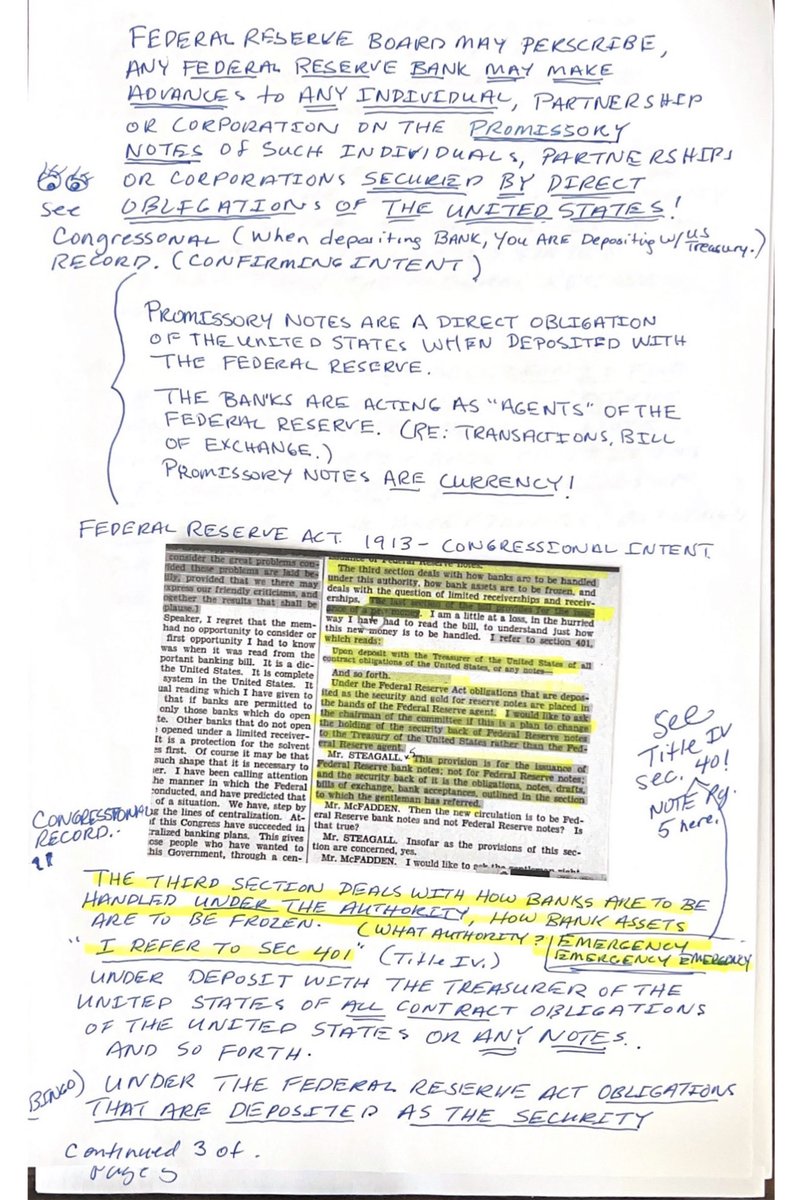 FEDERAL RESERVE BOARD MAY PERSCRIBE,
ANY FEDERAL RESERVE BANK MAY MAKE
ADVANCES to ANY INDIVIDUAL, PARTNERSHIP
OR CORPORATION ON THE PROMISSORY
NOTES OF SUCH INDIVIDUALS, PARTNERSHIPS
OR CORPORATIONS SECURED BY DIRECT
OBLIGATIONS OF THE UNITED STATES!
See
Congressonal (When depositing BANK, You ARE Depositing w/ US Treasury.)
RECORD. (CONFIRMING INTENT)
PROMISSORY NOTES ARE A DIRECT OBLIGATION
OF THE UNITED STATES WHEN DEPOSITED WITH
THE FEDERAL RESERVE.
THE BANKS ARE ACTING AS "AGENTS" OF THE
FEDERAL RESERVE. (RE: TRANSACTIONS, BILL
OF EXCHANGE.)
PROMISSORY NOTES ARE CURRENCY!
FEDERAL RESERVE ACT. 1913 - CONGRESSIONAL INTENT
consider the great problems con-
ided those problems are laid be-
lly, provided that we there may
express our friendly criticisms, and
ogether the results that shall be
plause.]
Speaker, I regret that the mem-
had no opportunity to consider or
first opportunity I had to know
was when it was read from the
portant banking bill. It is a dic-
the United States. It is complete
system in the United States. It
ual reading which I have given to
that if banks are permitted to
only those banks which do open
te. Other banks that do not
opened under a limited receiver-
It is a protection for the solvent
es first. Of course it may be that
such shape that it is necessary to
er. I have been calling attention
he manner in which the Federal
onducted, and have predicted that
of a situation. We have, step by
g the lines of centralization. At-
f this Congress have succeeded in
ralized banking plans. This gives
ose people who have wanted to
his Government, through a cen-
issuance of Federal Reserve notes.
The third section deals with how banks are to be handled
under this authority, how bank assets are to be frozen, and
deals with the question of limited receiverships and receiv-
erships. The last section of the bill provides for the issu-
ance of a new money. I am a little at a loss, in the hurried
way I have had to read the bill, to understand just how
this new money is to be handled. I refer to section 401,
which reads:
Upon deposit with the Treasurer of the United States of all
contract obligations of the United States, or any notes—
And so forth.
Under the Federal Reserve Act obligations that are depos-
ited as the security and gold for reserve notes are placed in
the hands of the Federal Reserve agent. I would like to ask
the chairman of the committee if this is a plan to change
the holding of the security back of Federal Reserve notes
to the Treasury of the United States rather than the Fed-
eral Reserve agent.
Mr. STEAGALL. This provision is for the issuance of
Federal Reserve bank notes; not for Federal Reserve notes;
and the security back of it is the obligations, notes, drafts,
bills of exchange, bank acceptances, outlined in the section
to which the gentleman has referred.
Mr. McFADDEN. Then the new circulation is to be Fed-
eral Reserve bank notes and not Federal Reserve notes? Is
that true?
Mr. STEAGALL. Insofar as the provisions of this sec-
tion are concerned, yes.
Mr. McFADDEN. I would like to ask the gentleman
See
Title IV
sec. 401
NOTE Pg.
5 here.
CONGRESSIONAL
RECORD..
THE THIRD SECTION DEALS WITH HOW BANKS ARE TO BE
HANDLED UNDER THE AUTHORITY, HOW BANK ASSETS
ARE TO BE FROZEN. (WHAT AUTHORITY? EMERGENCY
EMERGENCY EMERGENCY
"I REFER TO SEC 401" (Title IV.)
UNDER DEPOSIT WITH THE TREASURER OF THE
UNITED STATES OF ALL CONTRACT OBLIGATIONS
OF THE UNITED STATES OR ANY NOTES..
AND SO FORTH.
BINGO) UNDER THE FEDERAL RESERVE ACT OBLIGATIONS
THAT ARE DEPOSITED AS THE SECURITY
Continued 3 of.
pages